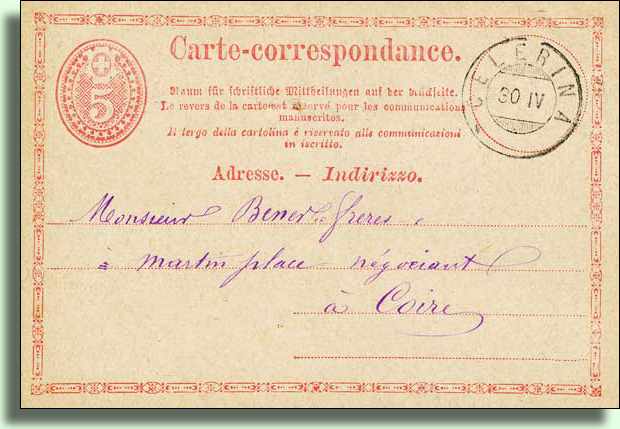 Carte-correspondance.
5
CELERINA
30 IV
Raum für schriftliche Mittheilungen auf der Rückseite.
Le revers de la carte est réservé pour les communications
manuscrites.
Il tergo della cartolina è riservato alle communicazioni
in iscritto.
Adresse. — Indirizzo.
Monsieur Bener & frères
martin place négociant
à Coire